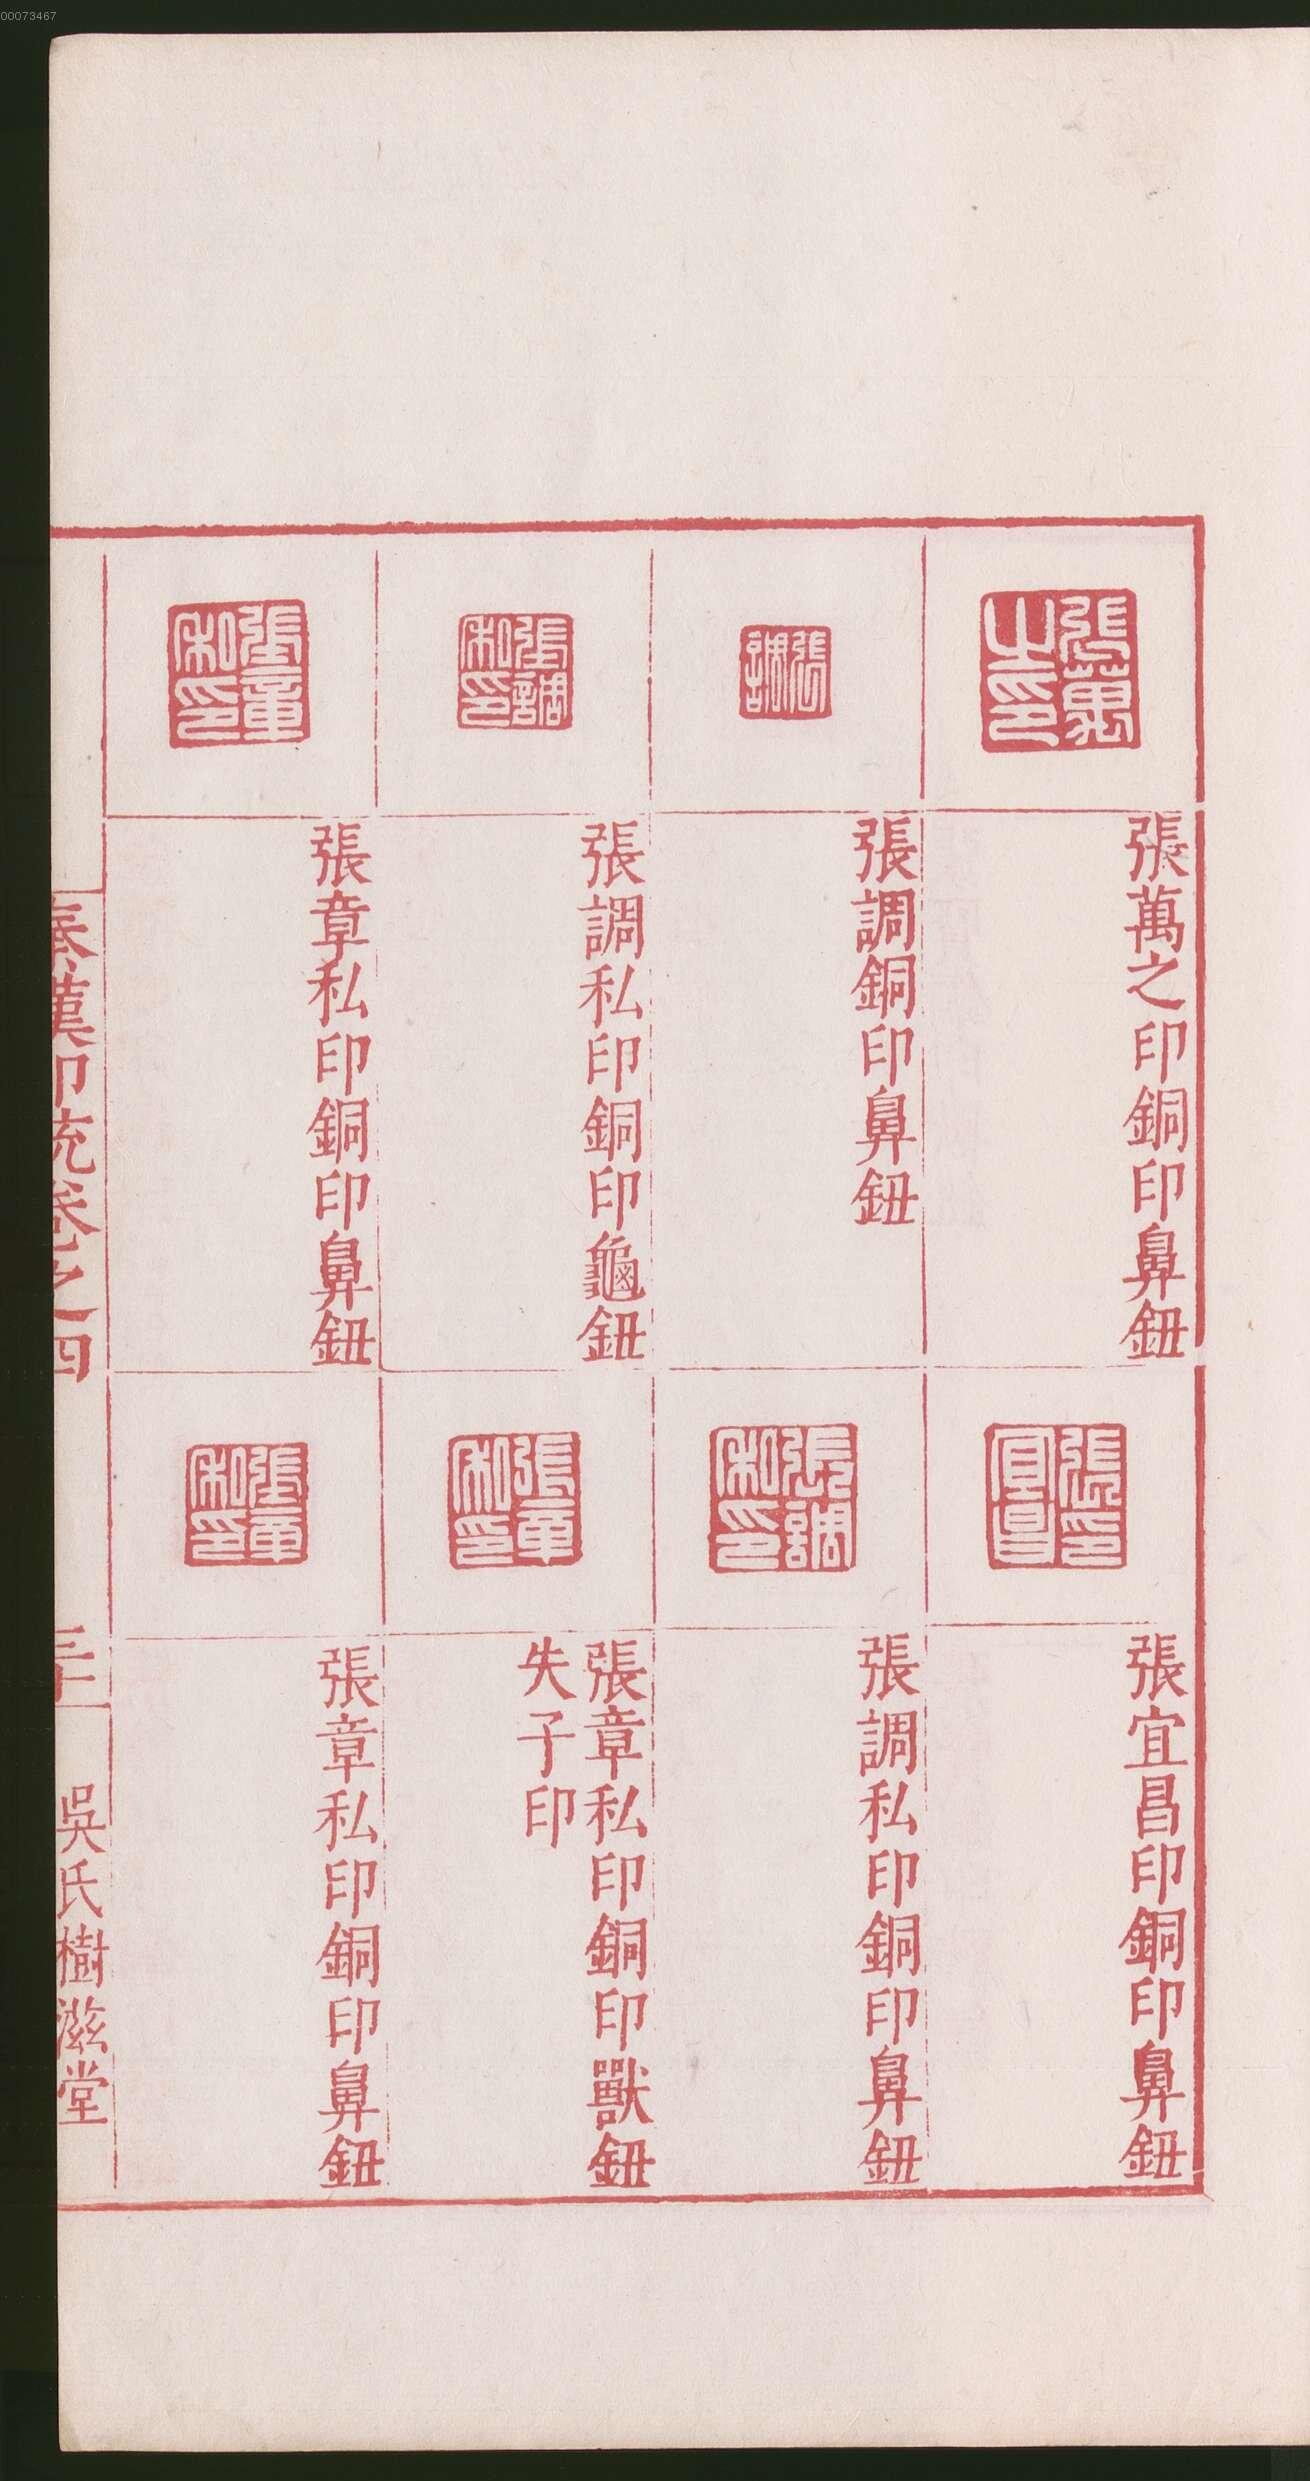 00073467
張萬之印
張萬之印銅印鼻鈕
張調
張調銅印鼻鈕
張調私印
張調私印銅印龜鈕
張章私印
張章私印銅印鼻鈕
張印宜昌
張宜昌印銅印鼻鈕
張調私印
張調私印銅印鼻鈕
張章私印
張章私印銅印獸鈕
失子印
張章私印
張章私印銅印鼻鈕
秦漢印統卷之四
吳氏樹滋堂